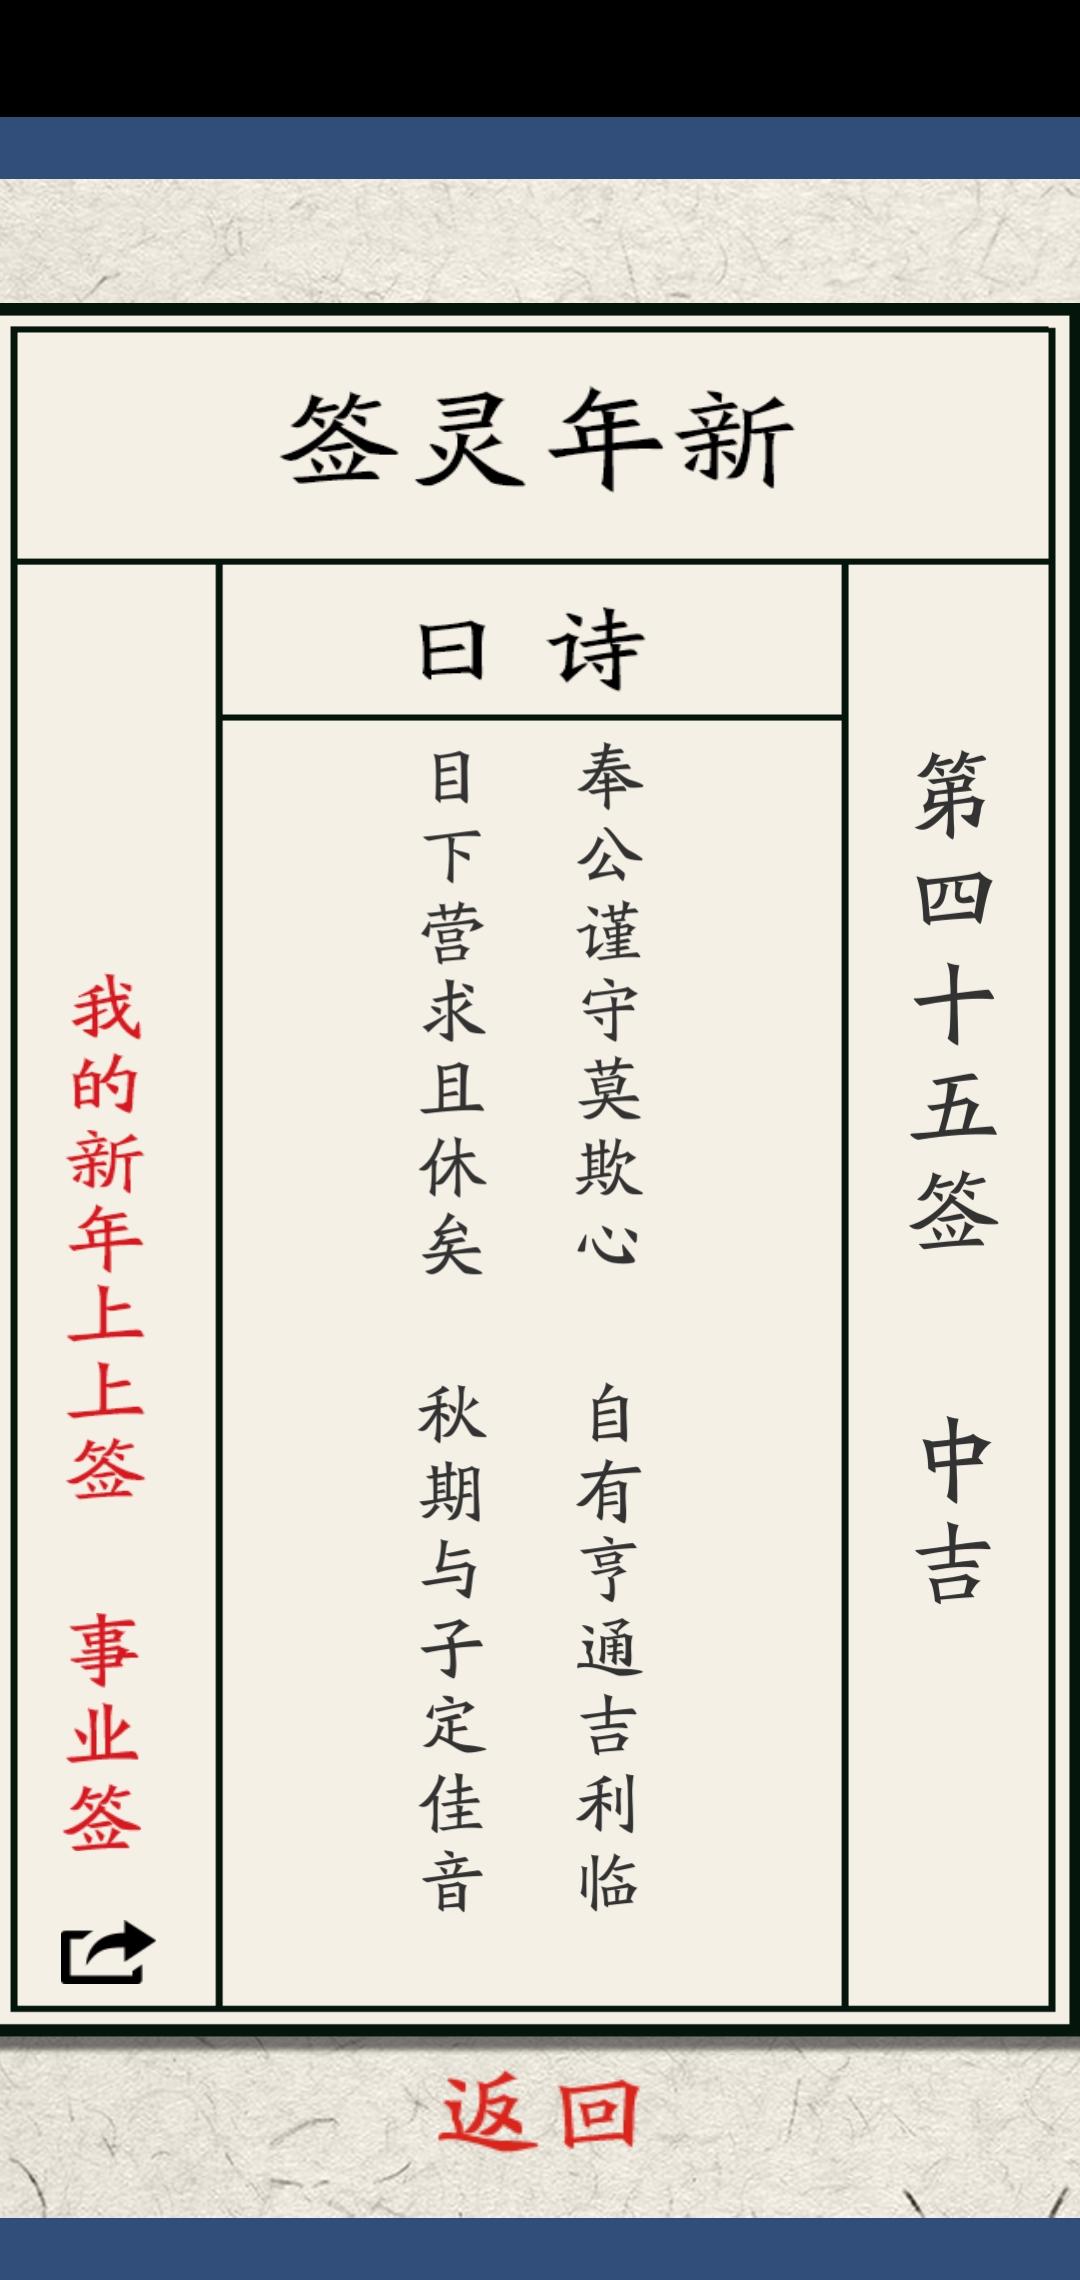 新年灵签
第四十五签 中吉
诗曰
奉公谨守莫欺心 自有亨通吉利临
目下营求且休矣 秋期与子定佳音
我的新年上上签 事业签
返回